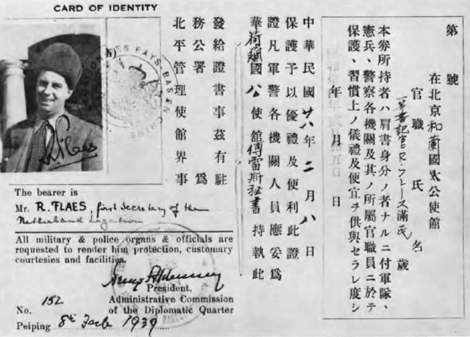 CARD OF IDENTITY
PAYS-BAS
The bearer is
Mr. R. FLAES, first Secretary of the
Netherland Legation
All military & police organs & officials are
requested to render him protection, customary
courtesies and facilities.
President,
Administrative Commission
No. 152 of the Diplomatic Quarter
Peiping 8th Feb 1939
北平管理使館界事
務公署為
發給證書事茲有駐
華荷蘭國公使館傅雷斯秘書持執此
證凡軍警各機關人員應妥為
保護予以優禮及便利此證
中華民國廿八年二月八日
第號
在北京和蘭國大公使館
官職氏名
一等書記官R.フレース滿歲
本券所持者ハ肩書身分ノ者ナルニ付軍隊、
憲兵、警察各機關及其ノ所屬官職員ニ於テ
保護、習慣上ノ儀禮及便宜ヲ供與セラレ度シ
年月日